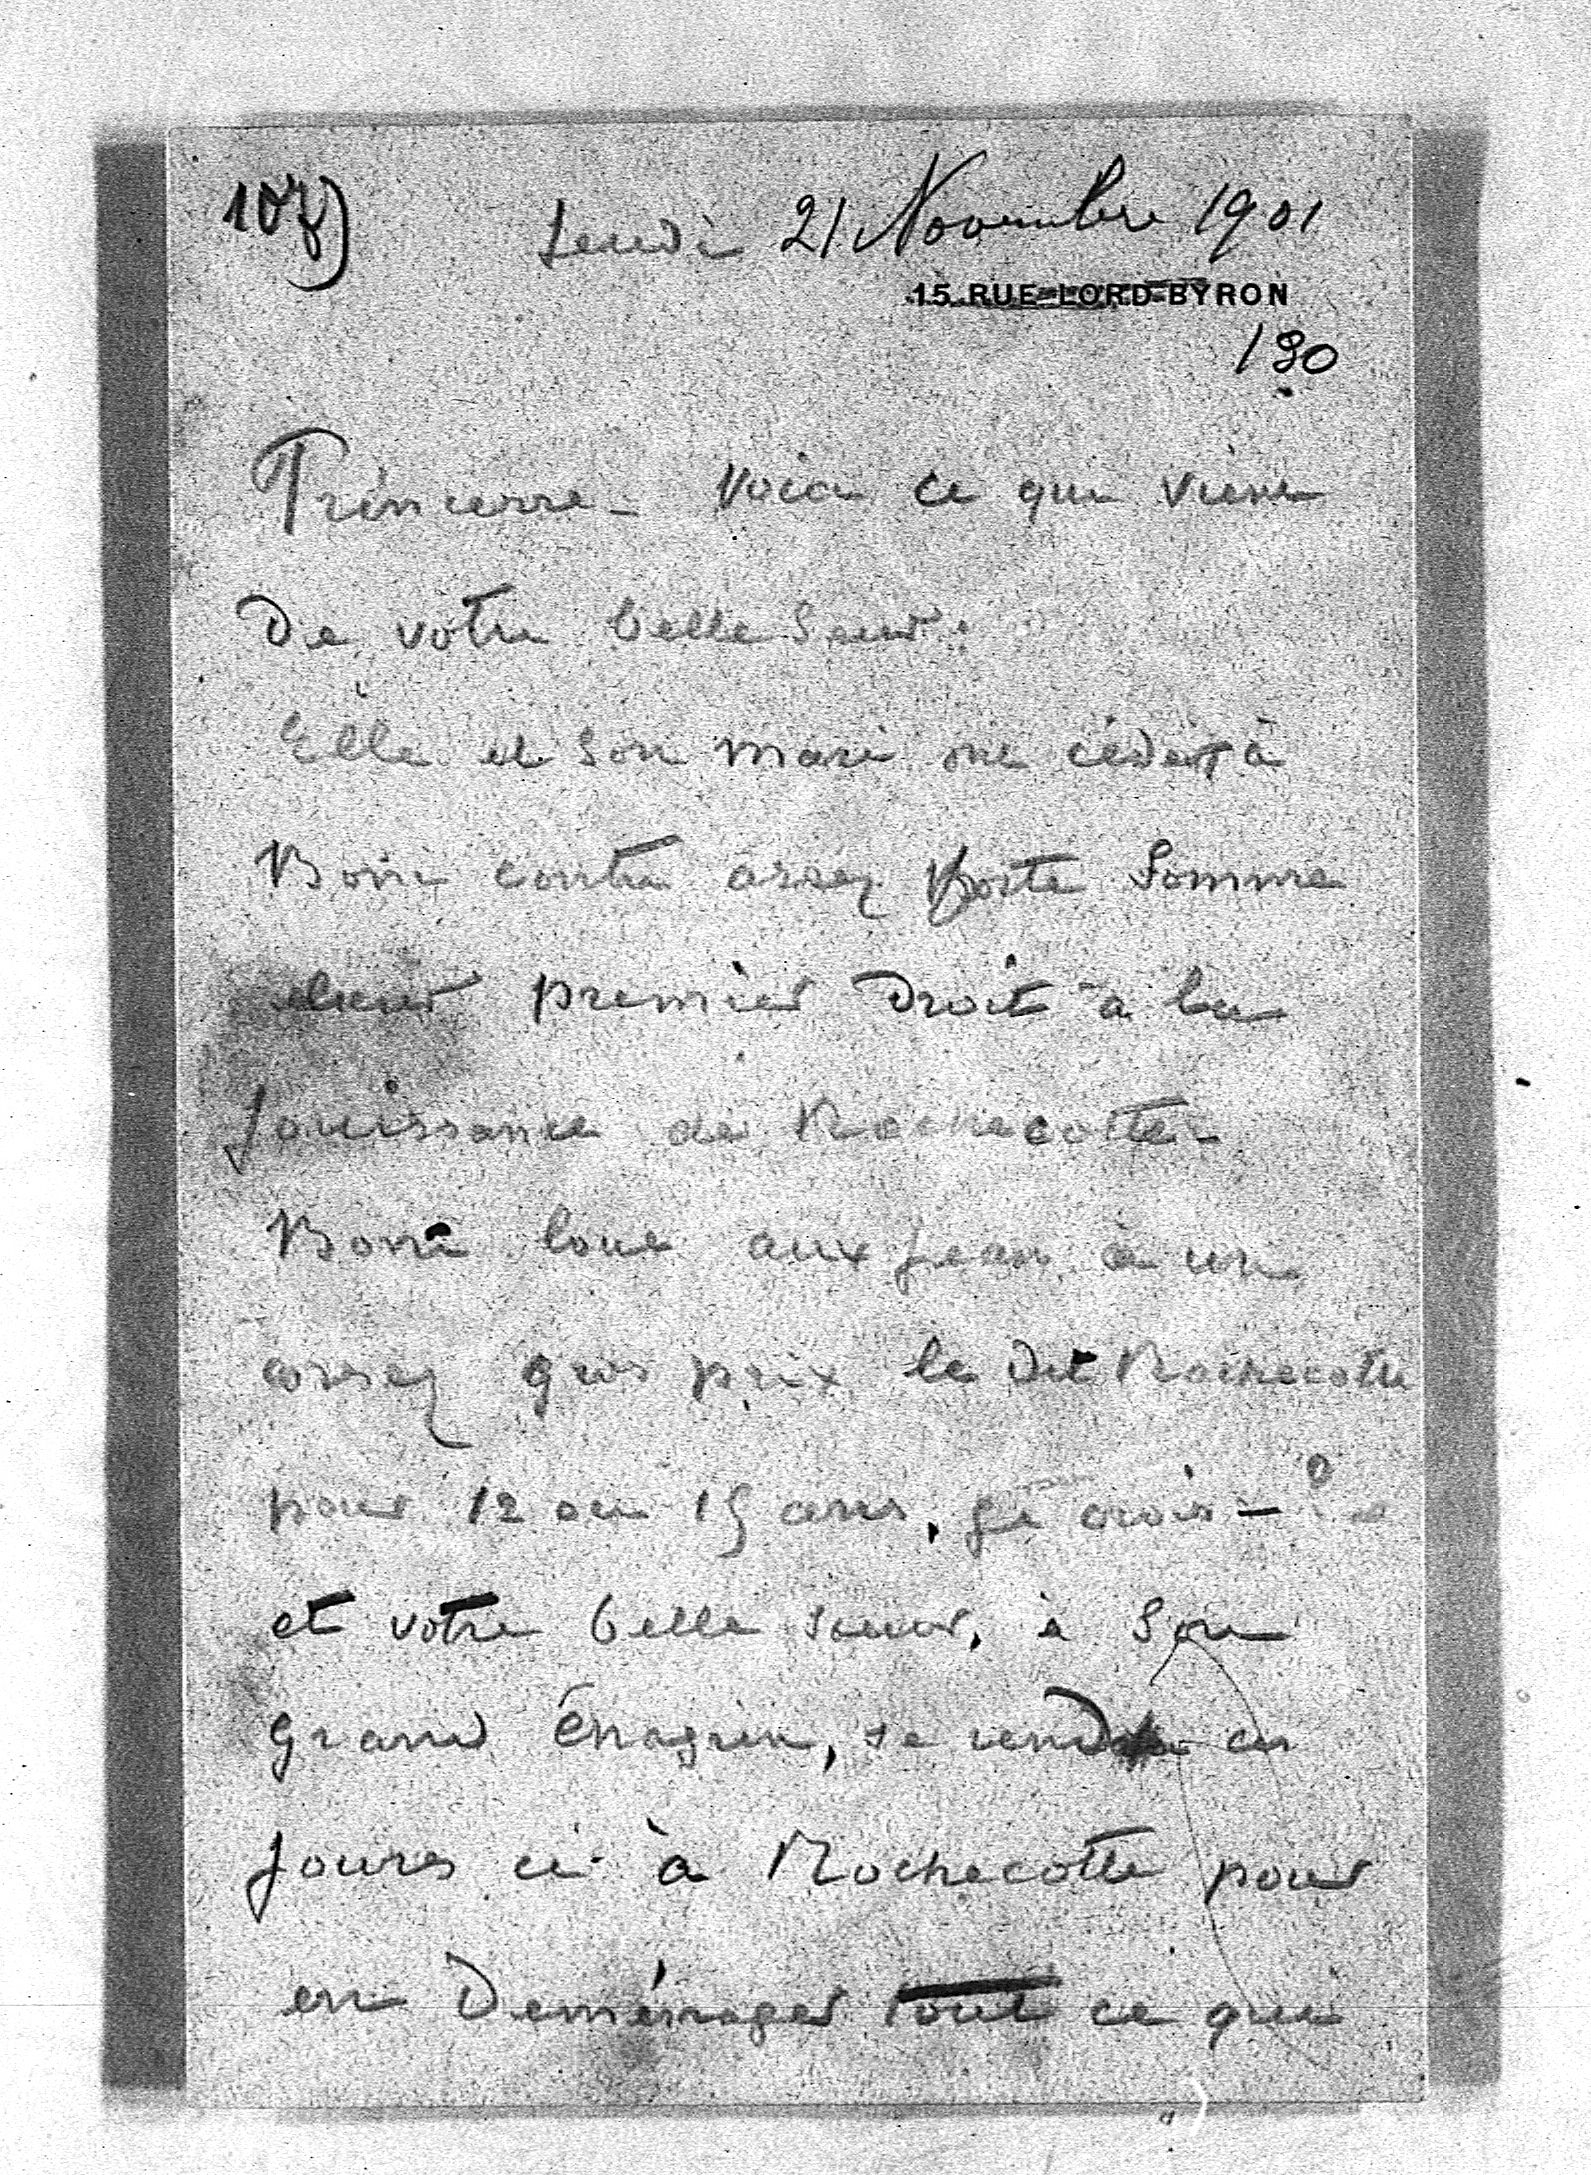 107)
Jeudi 21 Novembre 1901
15 RUE LORD-BYRON
130
Princesse - Voici ce qui vient
de votre belle sœur.
Elle et son mari ont cédé à
Boni contre assez forte somme
leur premier droit à la
jouissance de Rochecotte -
Boni loue aux Jean à un
assez gros prix le dit Rochecotte
pour 12 ou 15 ans, je crois -
et votre belle sœur, à son
grand chagrin, se rend ces
jours ci à Rochecotte pour
en Deménager tout ce qui